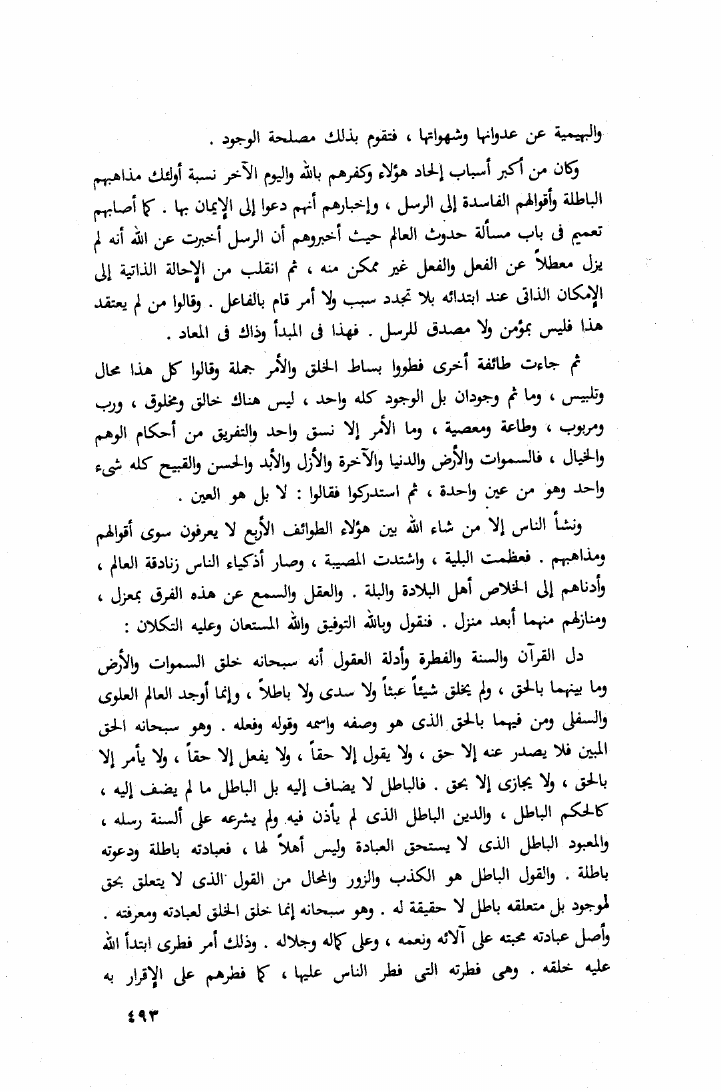 والبهيمية عن عدوانها وشهواتها ، فتقوم بذلك مصلحة الوجود .
وكان من أكبر أسباب إلحاد هؤلاء وكفرهم بالله واليوم الآخر نسبة أولئك مذاهبهم
الباطلة وأقوالهم الفاسدة إلى الرسل ، وإخبارهم أنهم دعوا إلى الإيمان بها . كما أصابهم
تعميم فى باب مسألة حدوث العالم حيث أخبروهم أن الرسل أخبرت عن الله أنه لم
يزل معطلاً عن الفعل والفعل غير ممكن منه ، ثم انقلب من الإحالة الذاتية إلى
الإمكان الذاتى عند ابتدائه بلا تجدد سبب ولا أمر قام بالفاعل . وقالوا من لم يعتقد
هذا فليس بمؤمن ولا مصدق للرسل . فهذا فى المبدأ وذاك فى المعاد .
ثم جاءت طائفة أخرى فطووا بساط الخلق والأمر جملة وقالوا كل هذا محال
وتلبيس ، وما ثم وجودان بل الوجود كله واحد ، ليس هناك خالق ومخلوق ، ورب
ومربوب ، وطاعة ومعصية ، وما الأمر إلا نسق واحد والتفريق من أحكام الوهم
والخيال ، فالسموات والأرض والدنيا والآخرة والأزل والأبد والحسن والقبيح كله شىء
واحد وهو من عين واحدة ، ثم استدركوا فقالوا : لا بل هو العين .
ونشأ الناس إلا من شاء الله بين هؤلاء الطوائف الأربع لا يعرفون سوى أقوالهم
ومذاهبهم . فعظمت البلية ، واشتدت المصيبة ، وصار أذكياء الناس زنادقة العالم ،
وأدناهم إلى الخلاص أهل البلادة والبلة . والعقل والسمع عن هذه الفرق بمعزل ،
ومنازلهم منهما أبعد منزل . فنقول وبالله التوفيق والله المستعان وعليه التكلان :
دل القرآن والسنة والفطرة وأدلة العقول أنه سبحانه خلق السموات والأرض
وما بينهما بالحق ، ولم يخلق شيئاً عبثاً ولا سدى ولا باطلاً ، وإنما أوجد العالم العلوى
والسفلى ومن فيهما بالحق الذى هو وصفه واسمه وقوله وفعله . وهو سبحانه الحق
المبين فلا يصدر عنه إلا حق ، ولا يقول إلا حقاً ، ولا يفعل إلا حقاً ، ولا يأمر إلا
بالحق ، ولا يجازى إلا بحق . فالباطل لا يضاف إليه بل الباطل ما لم يضف إليه ،
كالحكم الباطل ، والدين الباطل الذى لم يأذن فيه ولم يشرعه على ألسنة رسله ،
والمعبود الباطل الذى لا يستحق العبادة وليس أهلاً لها ، فعبادته باطلة ودعوته
باطلة . والقول الباطل هو الكذب والزور والمحال من القول الذى لا يتعلق بحق
لموجود بل متعلقه باطل لا حقيقة له . وهو سبحانه إنما خلق الخلق لعبادته ومعرفته .
وأصل عبادته محبته على آلائه ونعمه ، وعلى كماله وجلاله . وذلك أمر فطرى ابتدأ الله
عليه خلقه . وهى فطرته التى فطر الناس عليها ، كما فطرهم على الإقرار به
٤٩٣